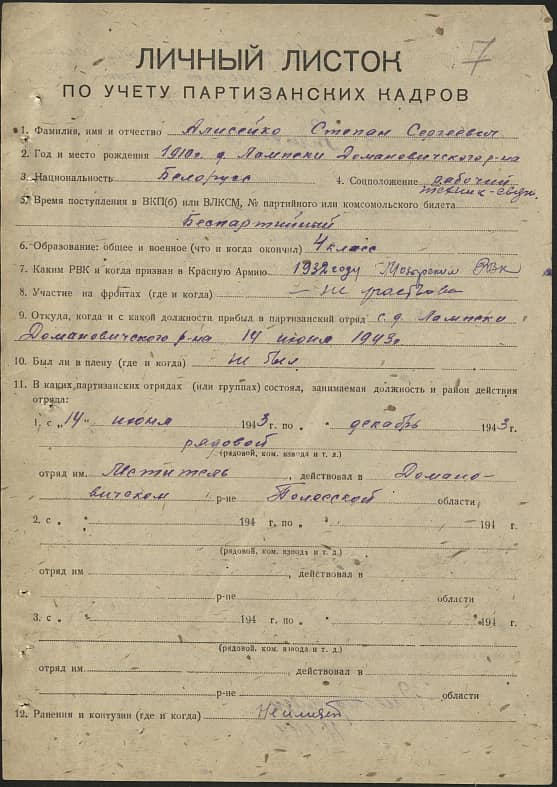 7
ЛИЧНЫЙ ЛИСТОК
ПО УЧЕТУ ПАРТИЗАНСКИХ КАДРОВ
1. Фамилия, имя и отчество Алисейко Степан Сергеевич
2. Год и место рождения 1910г. д. Лампеки Домановичского р-на
3. Национальность Белорусс 4. Соцположение рабочий
техник-связи
5. Время поступления в ВКП(б) или ВЛКСМ, № партийного или комсомольского билета
Беспартийный
6. Образование: общее и военное (что и когда окончил) 4 класс
7. Каким РВК и когда призван в Красную Армию 1932 году Мозырским РВК
8. Участие на фронтах (где и когда) — не участвовал
9. Откуда, когда и с какой должности прибыл в партизанский отряд с д. Лампеки
Домановичского р-на 14 июня 1943г
10. Был ли в плену (где и когда) не был
11. В каких партизанских отрядах (или группах) состоял, занимаемая должность и район действия
отряда:
1. с „14" июня 1943 г. по " декабрь 1943 г.
рядовой
(рядовой, ком. взвода и т. д.)
отряд им. Мститель, действовал в Домано-
вичском р-не Полесской области
2. с " 194 г. по " 194 г.
(рядовой, ком. взвода и т. д.)
отряд им. , действовал в
р-не области
3. с " 194 г. по " 194 г.
(рядовой, ком. взвода и т. д.)
отряд им. , действовал в
р-не области
12. Ранения и контузии (где и когда)